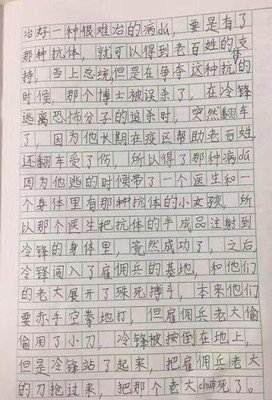 治好一种很难治的病du，要是有了
那种抗体，就可以得到老百姓的支
持，当上总统但是在争夺这种抗的
时候，那个博士被误杀了，在冷锋
逃离恐怖分子的追杀时，突然翻车
了，因为他长期在疫区帮助老百姓
还翻车受了伤，所以得了那种病du
因为他逃的时候带了一个医生和一
个身体里有那种抗体的小女孩，所
以那个医生把抗体的半成品注射到
冷锋的身体里，竟然成功了，之后
冷锋闯入了雇佣兵的基地，和他们
的老大展开了殊死搏斗，本来他们
要赤手空拳地打，但雇佣兵老大偷
偷用了小刀，冷锋被按倒在地上，
但是冷锋站了起来，把雇佣兵老大
的刀抢过来，把那个老大chuō死了。